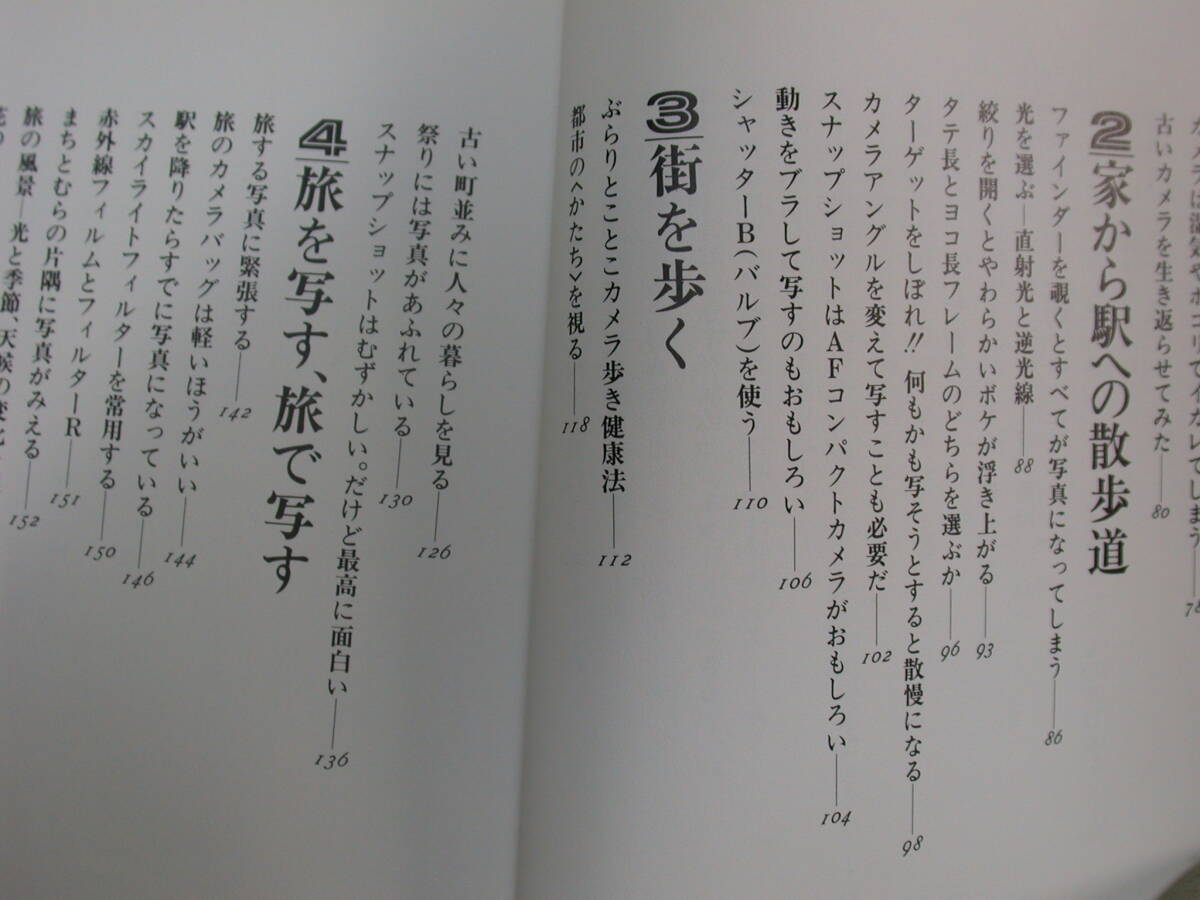 てしまう——78
古いカメラを生き返らせてみた——80
2 家から駅への散歩道
ファインダーを覗くとすべてが写真になってしまう——86
光を選ぶ—直射光と逆光線——88
絞りを開くとやわらかいボケが浮き上がる——93
タテ長とヨコ長フレームのどちらを選ぶか——96
ターゲットをしぼれ!! 何もかも写そうとすると散慢になる——98
カメラアングルを変えて写すことも必要だ——102
スナップショットはAFコンパクトカメラがおもしろい——104
動きをブラして写すのもおもしろい——106
シャッターB(バルブ)を使う——110
3 街を歩く
ぶらりとことこカメラ歩き健康法——112
都市の〈かたち〉を視る——118
古い町並みに人々の暮らしを見る——126
祭りには写真があふれている——130
スナップショットはむずかしい。だけど最高に面白い——136
4 旅を写す、旅で写す
旅する写真に緊張する——142
旅のカメラバッグは軽いほうがいい——144
駅を降りたらすでに写真になっている——146
スカイライトフィルターを常用する——150
赤外線フィルムとフィルターR——151
まちとむらの片隅に写真がみえる——152
旅の風景—光と季節、天候の変化